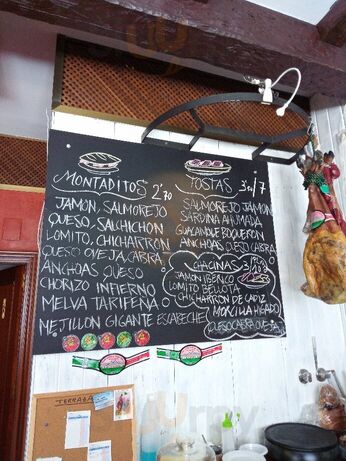 MONTADITOS 2'70
JAMÓN, SALMOREJO
QUESO, SALCHICHON
LOMITO, CHICHARRON
QUESO OVEJA, CABRA
ANCHOAS QUESO
CHORIZO INFIERNO
MELVA TARIFEÑA
MEJILLON GIGANTE ESCABECHE
TOSTAS
SALMOREJO JAMÓN
SARDINA AHUMADA
GUACAMOLE BOQUERON
ANCHOAS QUESO CABRA
CHACINAS
JAMON IBÉRICO
LOMITO BELLOTA
CHICHARRÓN DE CADIZ
MORCILLA HIGADO
QUESO CABRA OVEJA
TERRAZA